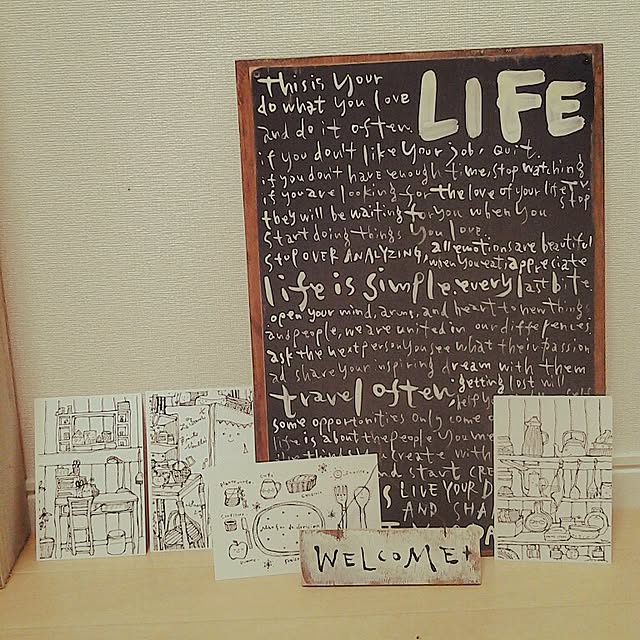 this is your LIFE
do what you love
and do it often.
if you don't like your job, quit.
if you don't have enough time, stop watching TV.
if you are looking for the love of your life, stop
they will be waiting for you when you
start doing things you love.
STOP OVER ANALYZING, all emotions are beautiful
when you eat, appreciate
life is simple. every last bite.
open your mind, arms, and heart to new things
and people, we are united in our differences.
ask the next person you see what their passion
ad share your inspiring dream with them
travel often. getting lost will
help
some opportunities only come
life is about the people you me
create with
nd start CRE
LIVE YOUR D
AND SHA
WELCOME